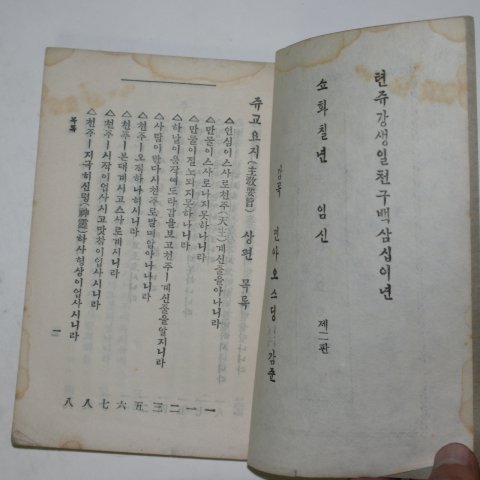 텬쥬강생일천구백삼십이년
쇼화칠년 임신
제二판
감목 민아오스딩 감쥰
쥬교요지(主敎要旨) 상편 목록
△인심이스사로천쥬(天主)계신줄을아나니라 一
△만물이스사로나지못하나니라 一
△만물이절노되지못하나니라 一
△하날이움작여도라감을보고천쥬ㅣ계신줄을알지니라 二
△사람이다시천쥬로말매암아나나니라 三
△천쥬ㅣ오직하나히시니라 五
△천쥬ㅣ본대계시고스사로계시니라 六
△천쥬ㅣ시작이업사시고맛참이업사시니라 七
△천쥬ㅣ지극히신령(神靈)하사형상이업사시니라 八
목록 一